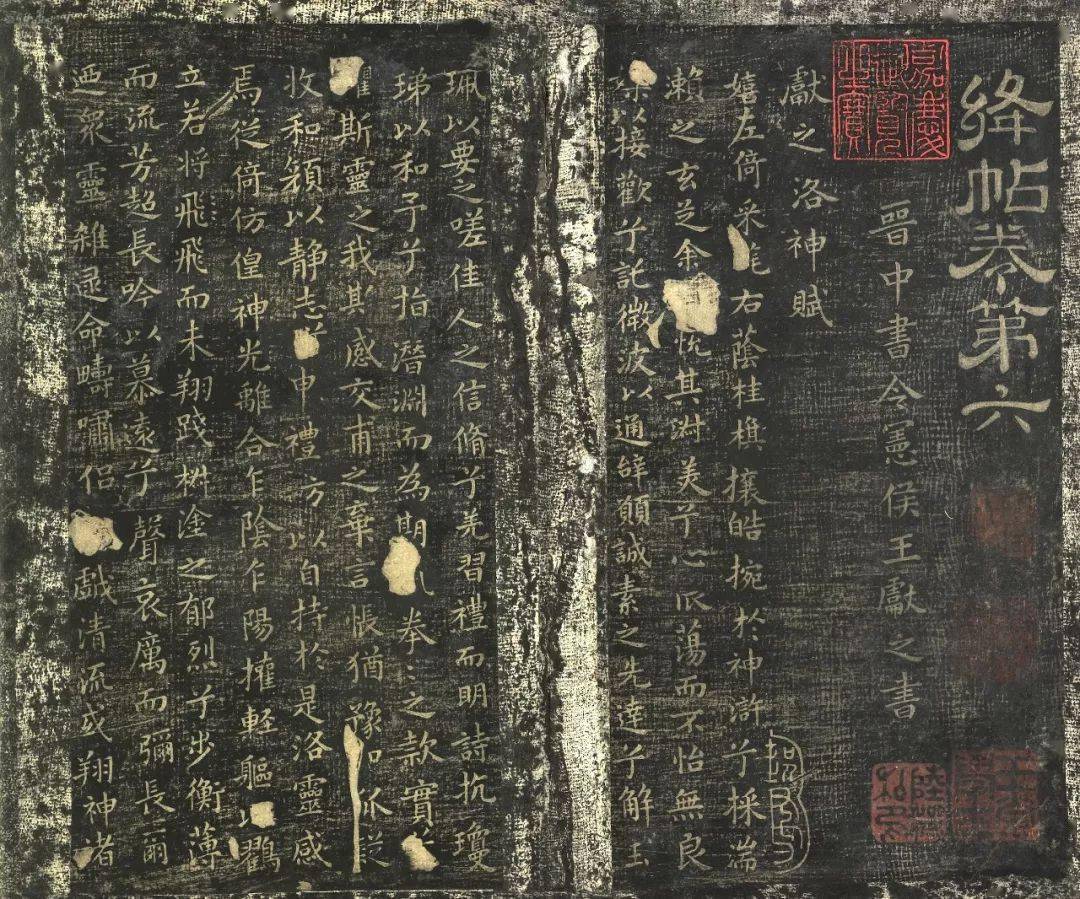 絳帖卷第六
嘉慶御覽之寶
晉中書令憲侯王獻之書
獻之洛神賦
嬉左倚采旄右蔭桂旗攘皓捥於神滸兮採湍
瀨之玄芝余悅其淑美兮心振蕩而不怡無良
以接歡兮託微波以通辭願誠素之先達兮解玉
珮以要之嗟佳人之信脩兮羌習禮而明詩抗瓊
珶以和予兮指潛淵而為期拳〻之款實
斯靈之我其感交甫之棄言悵猶豫而狐疑
收和顏以静志兮申禮方以自持於是洛靈感
焉徙倚仿偟神光離合乍陰乍陽擢輕軀以鸖
立若將飛飛而未翔踐椒塗之郁烈兮步衡薄
而流芳超長吟以慕遠兮聲哀厲而彌長爾
迺眾靈雜遝命疇嘯侶戲清流或翔神渚